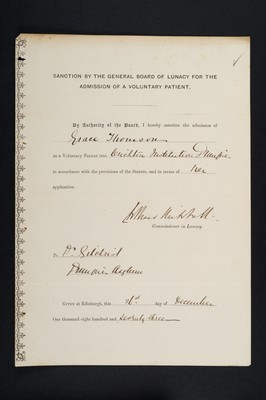 SANCTION BY THE GENERAL BOARD OF LUNACY FOR THE
ADMISSION OF A VOLUNTARY PATIENT.
By Authority of the Board, I hereby sanction the admission of
Grace Thomson
as a Voluntary Patient into Crichton Institution Dumfries
in accordance with the provisions of the Statute, and in terms of her
application.
Commissioner in Lunacy.
To Dr Gilchrist
Dumfries Asylum
Given at Edinburgh, this day of December
One thousand eight hundred and seventy three